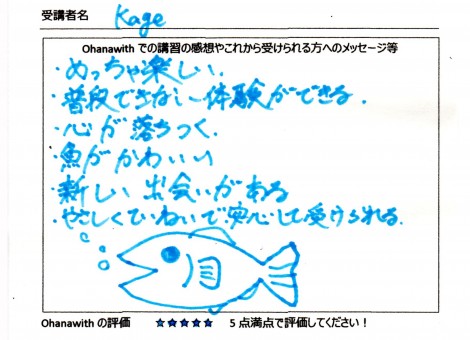 受講者名 Kage
Ohanawith での講習の感想やこれから受けられる方へのメッセージ等
・めっちゃ楽しい.
・普段できない体験ができる.
・心が落ちつく.
・魚がかわいい
・新しい出会いがある
・やさしくていねいで安心して受けられる.
Ohanawith の評価 ★★★★★ 5 点満点で評価してください！